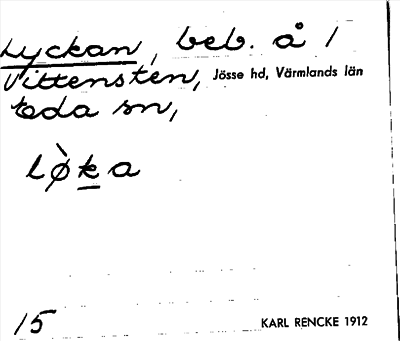 Lyckan, beb. å 1
Vittensten, Jösse hd, Värmlands län
Eda sn,
lø̀ḵa
15
KARL RENCKE 1912